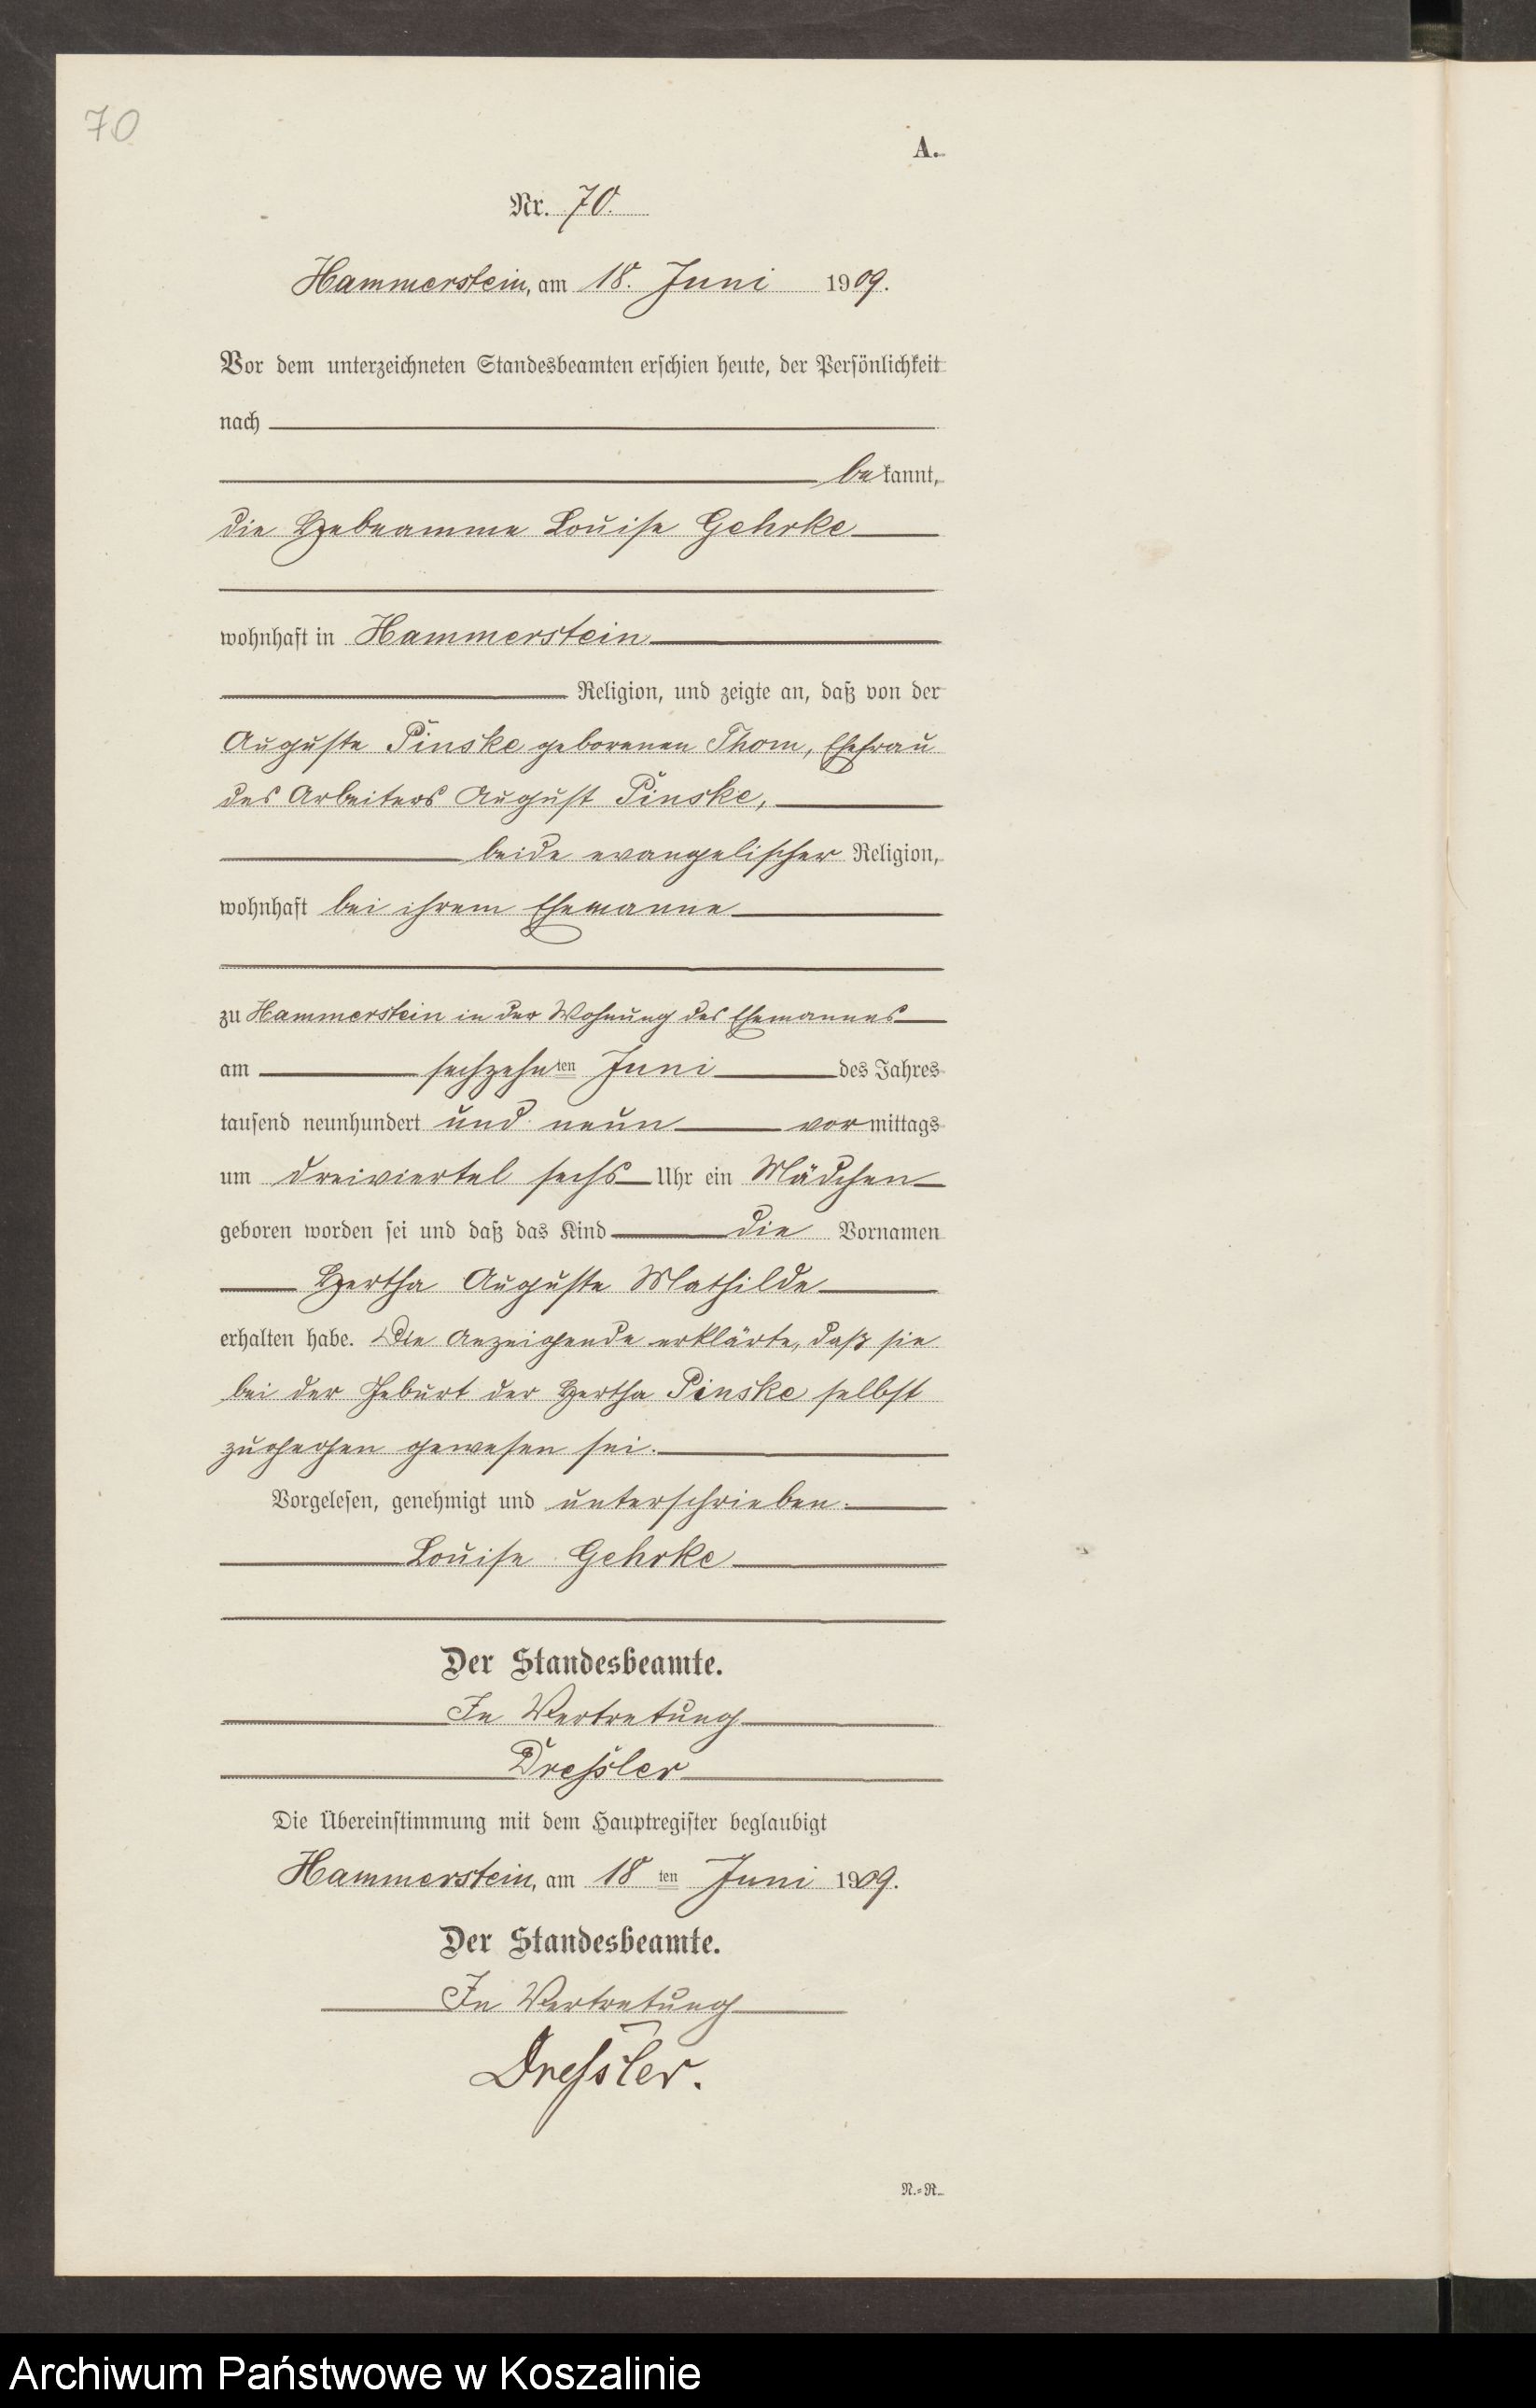 70
A.
Nr. 70.
Hammerstein, am 18. Juni 1909.
Vor dem unterzeichneten Standesbeamten erschien heute, der Persönlichkeit
nach
bekannt,
die Hebeamme Louise Gehrke
wohnhaft in Hammerstein
Religion, und zeigte an, daß von der
Auguste Pinske geborenen Thom, Ehefrau
des Arbeiters August Pinske,
beide evangelischer Religion,
wohnhaft bei ihrem Ehemanne
zu Hammerstein in der Wohnung des Ehemannes
am sechzehnten Juni des Jahres
tausend neunhundert und neun vormittags
um dreiviertel sechs Uhr ein Mädchen
geboren worden sei und daß das Kind die Vornamen
Hertha Auguste Mathilde
erhalten habe. Die Anzeigende erklärte, daß sie
bei der Geburt der Hertha Pinske selbst
zugegen gewesen sei.
Vorgelesen, genehmigt und unterschrieben.
Louise Gehrke
Der Standesbeamte.
In Vertretung
Dressler
Die Übereinstimmung mit dem Hauptregister beglaubigt
Hammerstein, am 18ten Juni 1909.
Der Standesbeamte.
In Vertretung
Dressler.
N.=R.
Archiwum Państwowe w Koszalinie